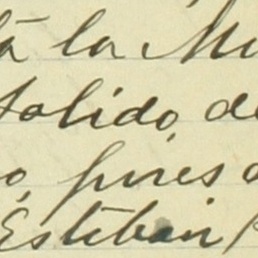 tá la Mu
Salido, de
o, pues d
Esteban